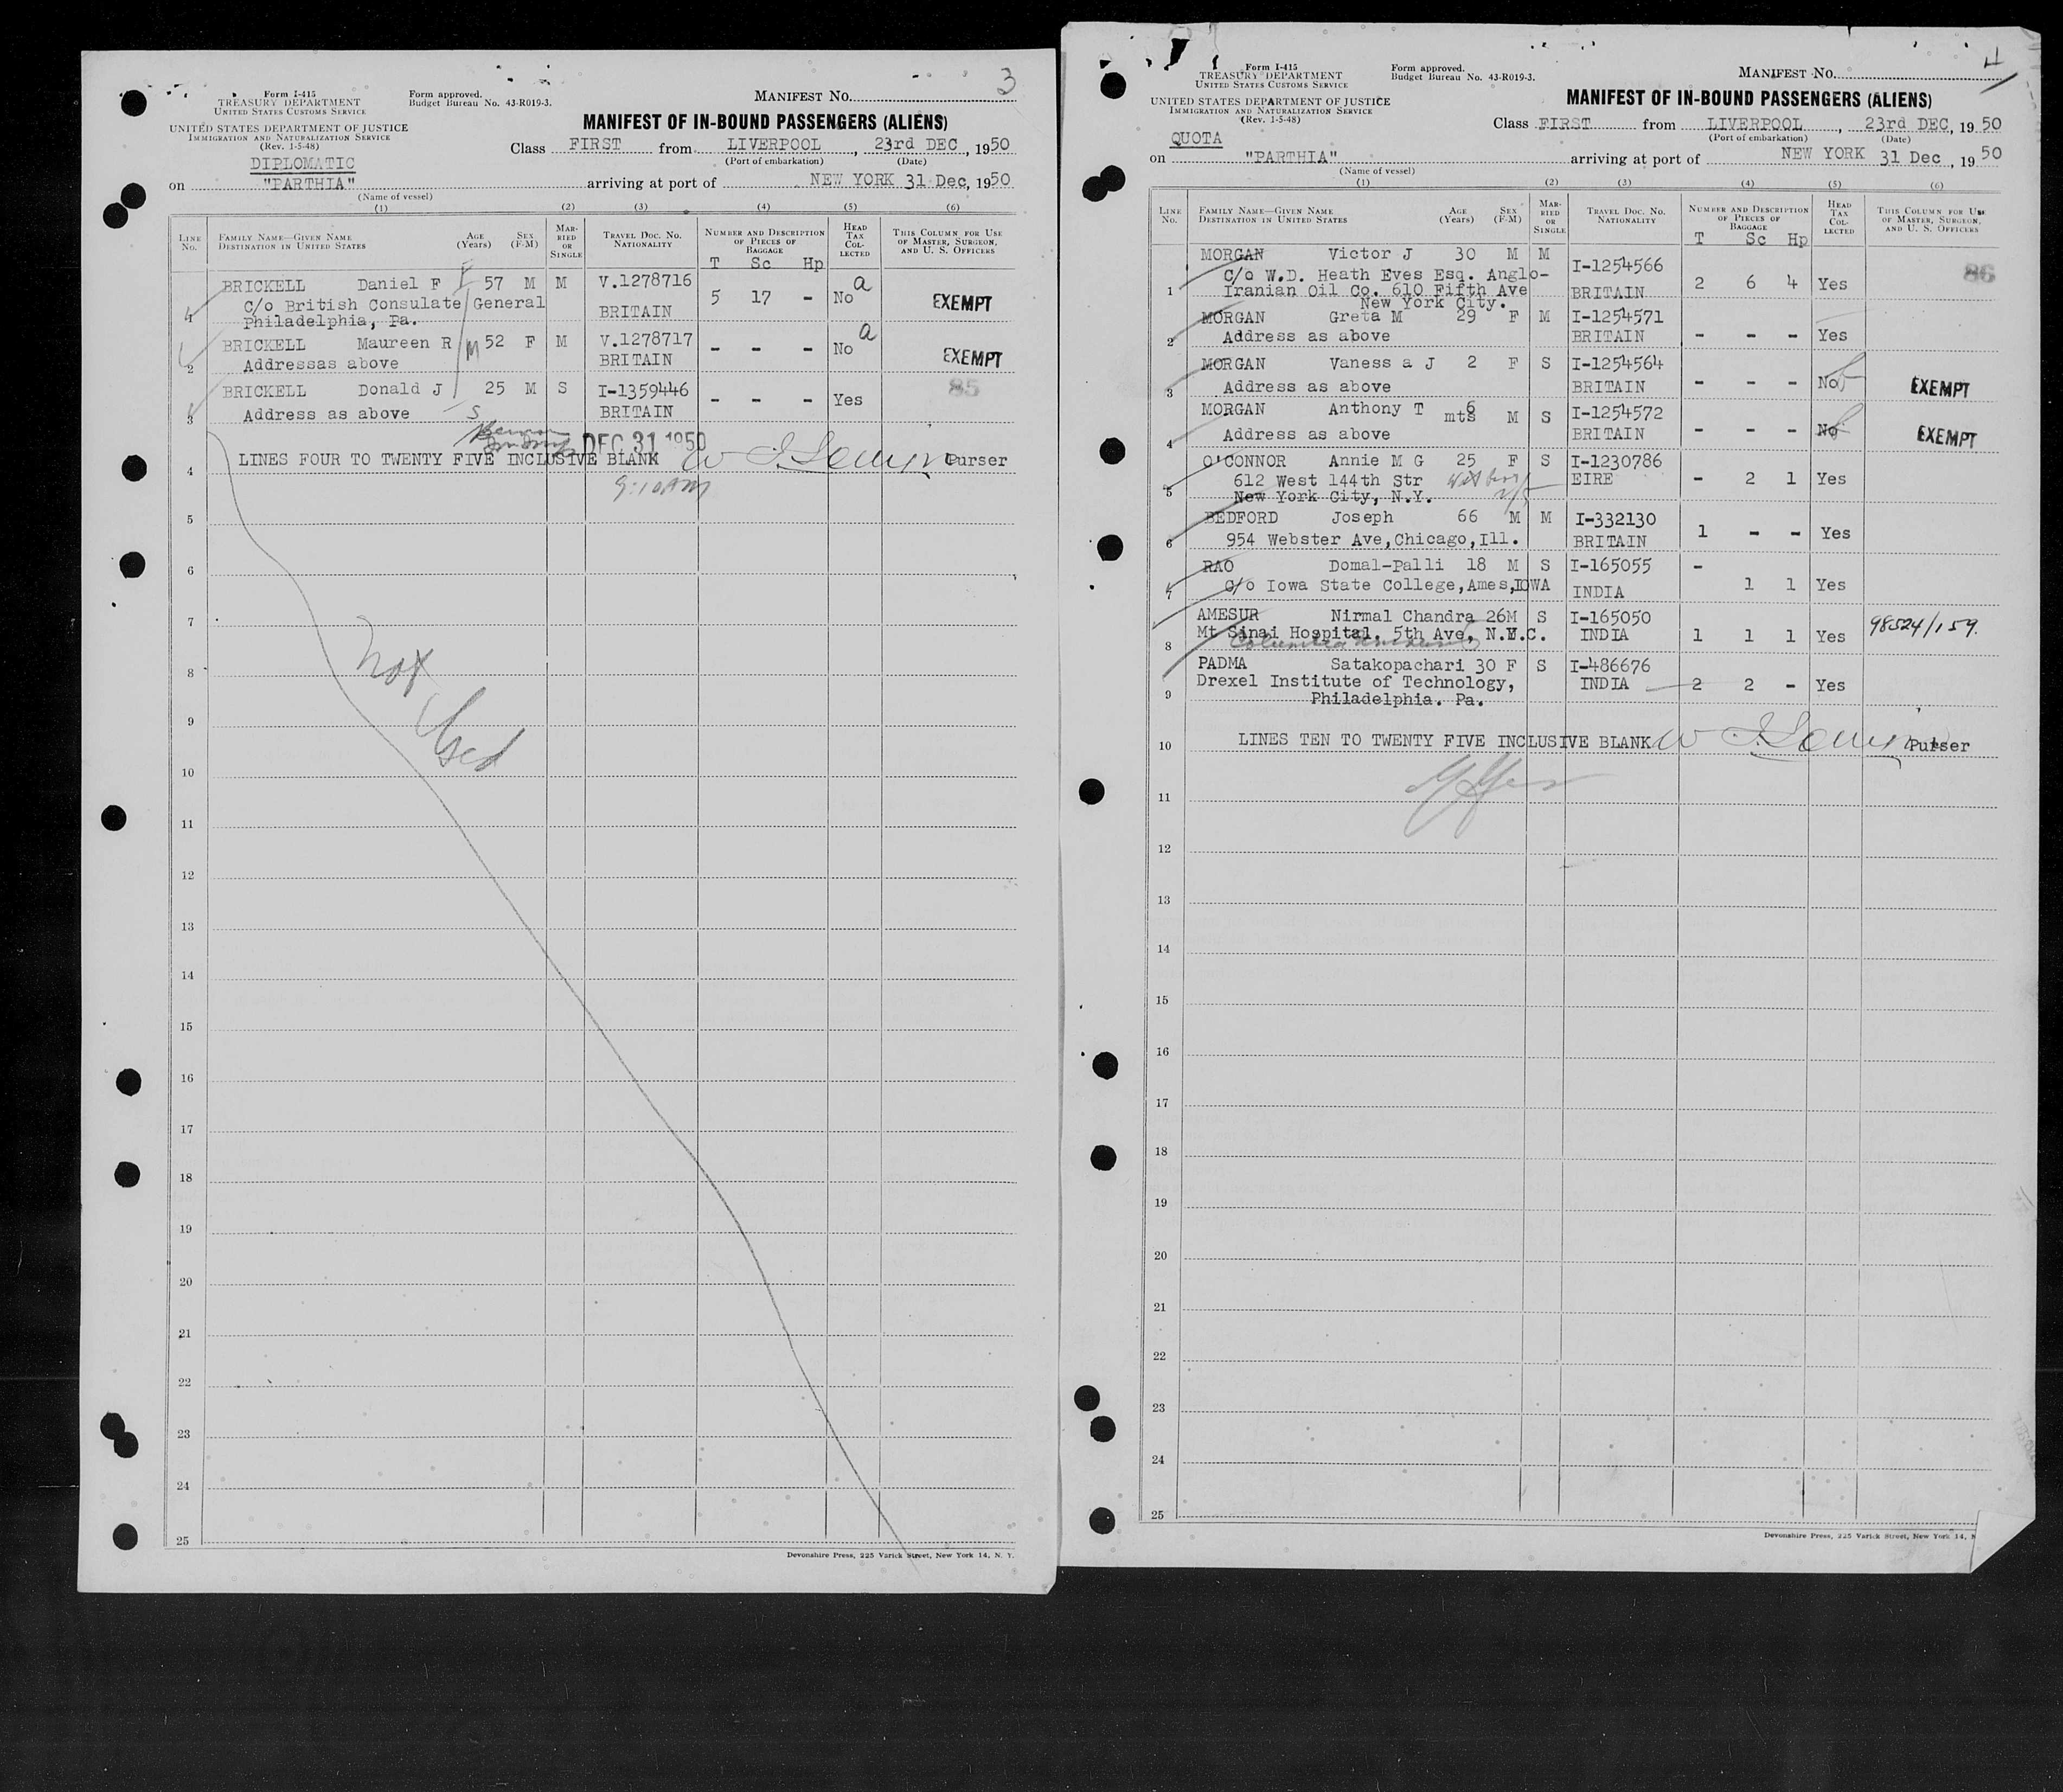 3
Form I-415
TREASURY DEPARTMENT
UNITED STATES CUSTOMS SERVICE
Form approved.
Budget Bureau No. 43-R019-3.
MANIFEST No.
UNITED STATES DEPARTMENT OF JUSTICE
IMMIGRATION AND NATURALIZATION SERVICE
(Rev. 1-5-48)
MANIFEST OF IN-BOUND PASSENGERS (ALIENS)
DIPLOMATIC
Class FIRST from LIVERPOOL, 23rd DEC, 1950
(Port of embarkation) (Date)
on "PARTHIA" arriving at port of NEW YORK 31 Dec, 1950
(Name of vessel)
(1) (2) (3) (4) (5) (6)
LINE No. FAMILY NAME—GIVEN NAME DESTINATION IN UNITED STATES AGE (Years) SEX (F-M) MARRIED OR SINGLE TRAVEL DOC. NO. NATIONALITY NUMBER AND DESCRIPTION OF PIECES OF BAGGAGE HEAD TAX COLLECTED THIS COLUMN FOR USE OF MASTER, SURGEON, AND U. S. OFFICERS
T Sc Hp
BRICKELL Daniel F F 57 M M V.1278716
1 C/o British Consulate General BRITAIN 5 17 - No a EXEMPT
Philadelphia, Pa.
BRICKELL Maureen R M 52 F M V.1278717
2 Addressas above BRITAIN - - - No a EXEMPT
BRICKELL Donald J 25 M S I-1359446 85
3 Address as above S BRITAIN - - - Yes
DEC 31 1950
4 LINES FOUR TO TWENTY FIVE INCLUSIVE BLANK Purser
9:10 AM
5
6
7
Not
8
Used
9
10
11
12
13
14
15
16
17
18
19
20
21
22
23
24
25
Devonshire Press, 225 Varick Street, New York 14, N. Y.
4
Form I-415
TREASURY DEPARTMENT
UNITED STATES CUSTOMS SERVICE
Form approved.
Budget Bureau No. 43-R019-3.
MANIFEST No.
UNITED STATES DEPARTMENT OF JUSTICE
IMMIGRATION AND NATURALIZATION SERVICE
(Rev. 1-5-48)
MANIFEST OF IN-BOUND PASSENGERS (ALIENS)
QUOTA
Class FIRST from LIVERPOOL, 23rd DEC, 1950
(Port of embarkation) (Date)
on "PARTHIA" arriving at port of NEW YORK 31 Dec, 1950
(Name of vessel)
(1) (2) (3) (4) (5) (6)
LINE No. FAMILY NAME—GIVEN NAME DESTINATION IN UNITED STATES AGE (Years) SEX (F-M) MARRIED OR SINGLE TRAVEL DOC. NO. NATIONALITY NUMBER AND DESCRIPTION OF PIECES OF BAGGAGE HEAD TAX COLLECTED THIS COLUMN FOR USE OF MASTER, SURGEON, AND U. S. OFFICERS
T Sc Hp
MORGAN Victor J 30 M M I-1254566 86
C/o W.D. Heath Eves Esq. Anglo-
1 Iranian Oil Co. 610 Fifth Ave BRITAIN 2 6 4 Yes
New York City.
MORGAN Greta M 29 F M I-1254571
2 Address as above BRITAIN - - - Yes
MORGAN Vaness a J 2 F S I-1254564
3 Address as above BRITAIN - - - No EXEMPT
MORGAN Anthony T 6 mts M S I-1254572
4 Address as above BRITAIN - - - No EXEMPT
O'CONNOR Annie M G 25 F S I-1230786
5 612 West 144th Str EIRE - 2 1 Yes
New York City, N.Y.
BEDFORD Joseph 66 M M I-332130
6 954 Webster Ave,Chicago,Ill. BRITAIN 1 - - Yes
RAO Domal-Palli 18 M S I-165055 -
7 C/o Iowa State College,Ames,IOWA INDIA 1 1 Yes
AMESUR Nirmal Chandra 26M S I-165050
8 Mt Sinai Hospital. 5th Ave, N.Y.C. INDIA 1 1 1 Yes 98524/159.
PADMA Satakopachari 30 F S I-486676
9 Drexel Institute of Technology, INDIA 2 2 - Yes
Philadelphia. Pa.
10 LINES TEN TO TWENTY FIVE INCLUSIVE BLANK Purser
11
12
13
14
15
16
17
18
19
20
21
22
23
24
25
Devonshire Press, 225 Varick Street, New York 14, N